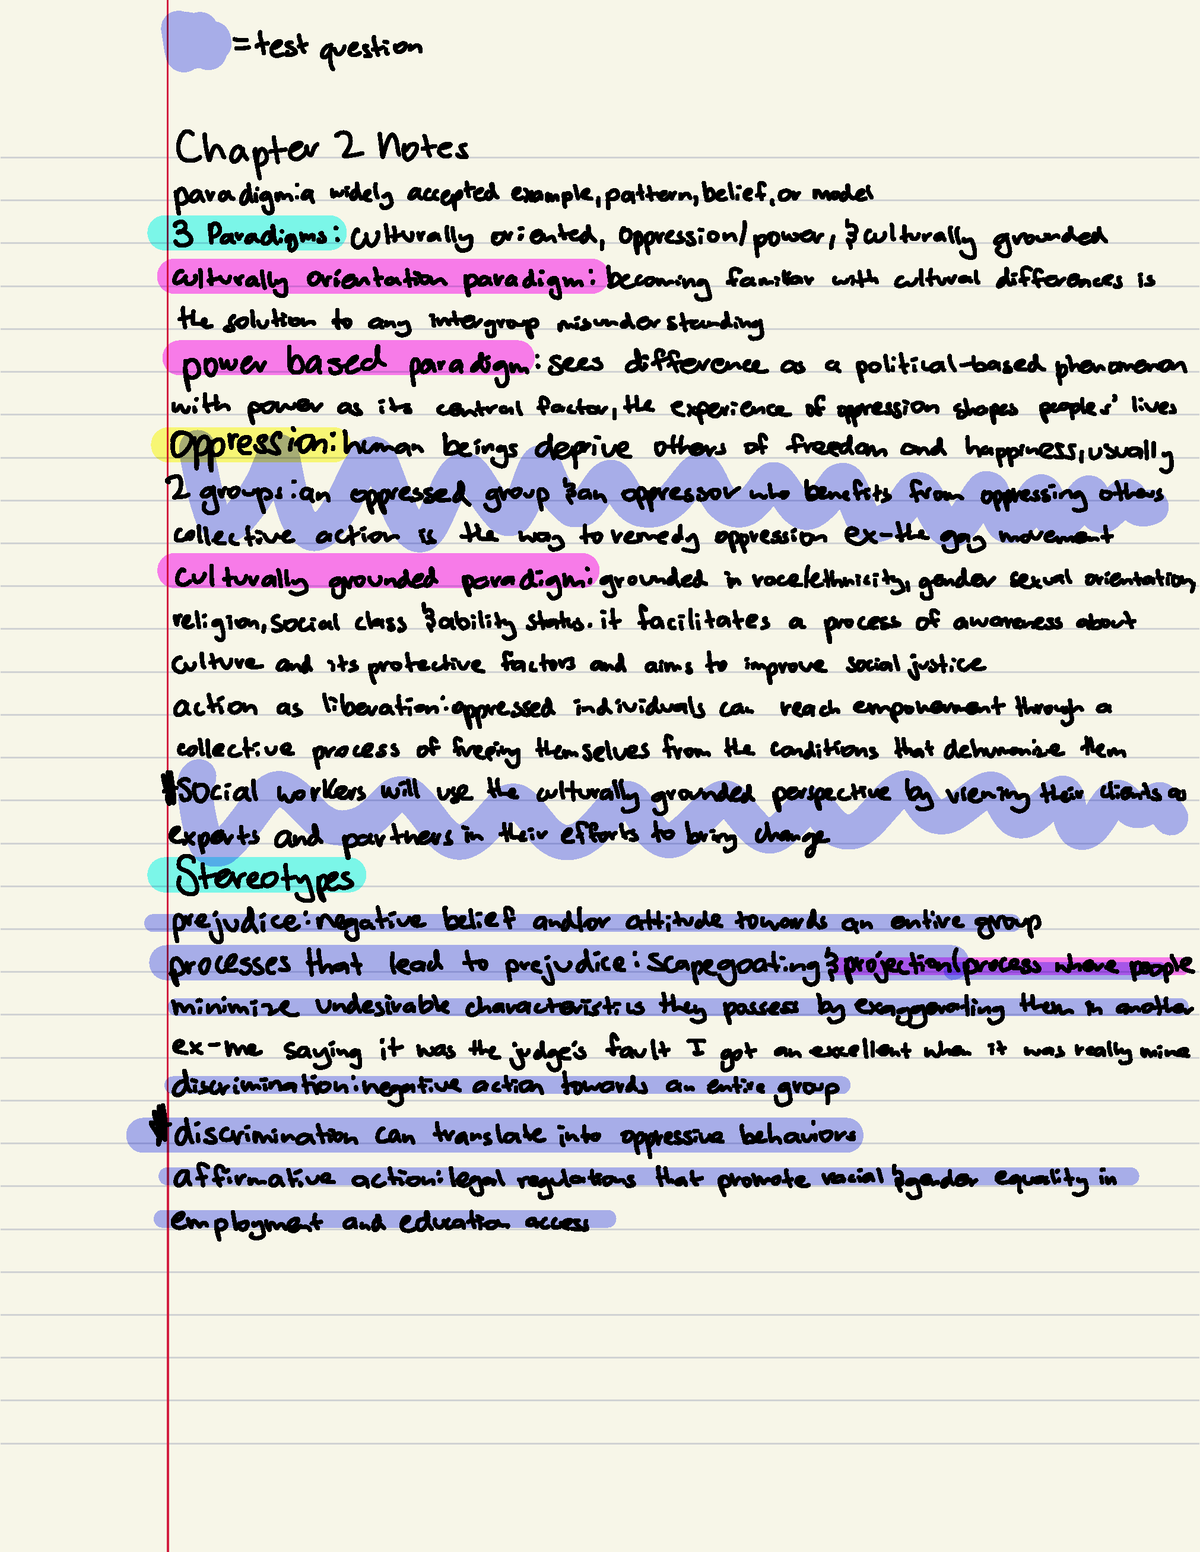 =test question
Chapter 2 Notes
paradigm:a widely accepted example, pattern, belief, or model
3 Paradigms: culturally oriented, oppression/power, & culturally grounded
culturally orientation paradigm: becoming familiar with cultural differences is
the solution to any intergroup misunderstanding
power based paradigm: sees difference as a political-based phenomenon
with power as its central factor, the experience of oppression shapes peoples' lives
Oppression: human beings deprive others of freedom and happiness, usually
2 groups: an oppressed group & an oppressor who benefits from oppressing others
collective action is the way to remedy oppression ex-the gay movement
Culturally grounded paradigm: grounded in race/ethnicity, gender sexual orientation,
religion, social class & ability status. it facilitates a process of awareness about
culture and its protective factors and aims to improve social justice
action as liberation: oppressed individuals can reach empowerment through a
collective process of freeing themselves from the conditions that dehumanize them
*Social workers will use the culturally grounded perspective by viewing their clients as
experts and partners in their efforts to bring change
Stereotypes
prejudice: negative belief and/or attitude towards an entire group
processes that lead to prejudice: scapegoating & projection(process where people
minimize undesirable characteristics they possess by exaggerating them in another
ex-me saying it was the judge's fault I got an excellent when it was really mine
discrimination: negative action towards an entire group
*discrimination can translate into oppressive behaviors
affirmative action: legal regulations that promote racial & gender equality in
employment and education access